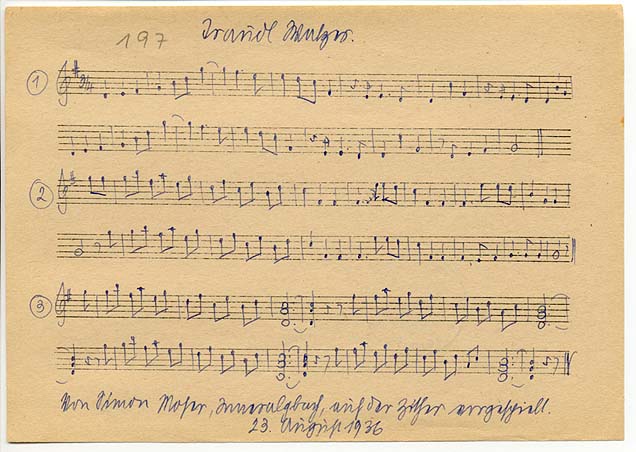 197 Traudl Walzer.
1
2
3
Von Simon Moser, Inneralpbach, auf der Zither vorgespielt.
23. August 1936